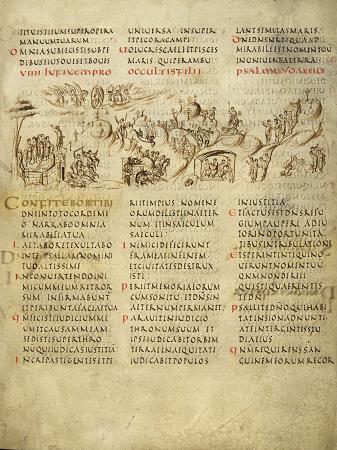 ITUISTIEUMSUPEROPERA
MANUUMTUARUM
OMNIASUBIECISTISUBPE
DIBUSEIUSOUESETBOUES
UNIUERSA INSUPER
ETPECORACAMPI
UOLUCRESCAELIETPISCES
MARIS QUIPERAMBU
LANTSEMITASMARIS
DNEDNSNRQUAAD
MIRABILEESTNOMENTUU
INUNIUERSATERRA
VIIII INFINEMPRO OCCULTISFILII PSALMUSDAUID
CONFITEBORTIBI
DNEINTOTOCORDEME
O NARRABOOMNIA
MIRABILIATUA
LAETABORETEXULTABO
INTE PSALLAMNOMINI
TUOALTISSIME
INCONUERTENDOINI
MICUMMEUMRETROR
SUM INFIRMABUNT
ETPERIBUNTAFACIETUA
QMFECISTIIUDICIUMME
UMETCAUSAMMEAM
SEDISTISUPERTHRO
NUMQUIIUDICASIUSTITIA
INCREPASTIGENTESETPE
RIITIMPIUS NOMENE
ORUMDELESTIINAETER
NUMETINSAECULUM
SAECULI
INIMICIDEFECERUNT
FRAMEAEINFINEM
ETCIUITATESDESTRUX
ISTI
PERIITMEMORIAEORUM
CUMSONITU ETDNSIN
AETERNUMPERMANET
PARAUITINIUDICIO
THRONUMSUUM ET
IPSEIUDICABITORBEM
TERRAEINAEQUITATE
IUDICABITPOPULOS
INIUSTITIA
ETFACTUSESTDNSREFU
GIUMPAUPERI ADIU
TORINOPORTUNITA
TIBUSINTRIBULATIONE
ETSPERENTINTEQUINO
UERUNTNOMENTUU
QMNONDERELI
QUISTIQUAERENTES
TEDNE
PSALLITEDNOQUIHABI
TATINSION ADNUNTI
ATEINTERGENTESSTU
DIAEIUS
QMREQUIRENSSAN
GUINEMEORUMRECOR